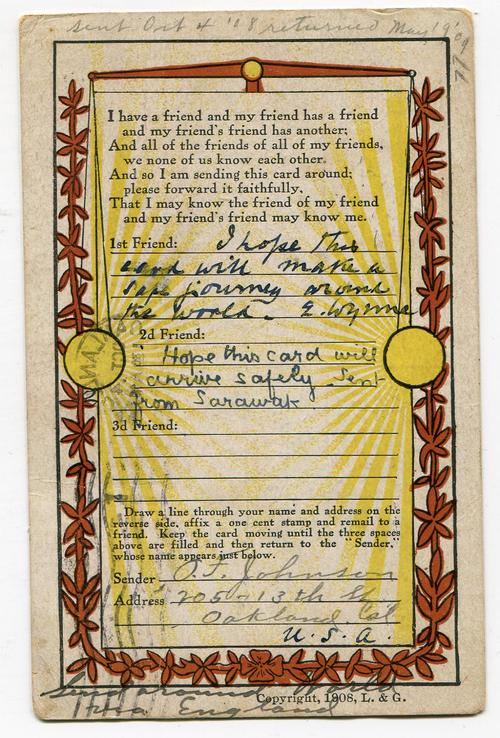 sent Oct 4 '08 returned May 9 '09
I have a friend and my friend has a friend
and my friend's friend has another;
And all of the friends of all of my friends,
we none of us know each other.
And so I am sending this card around;
please forward it faithfully,
That I may know the friend of my friend
and my friend's friend may know me.
1st Friend: I hope this
card will make a
safe journey around
the world. E. Wynne
2d Friend:
Hope this card will
arrive safely. Sent
from Sarawak
3d Friend:
Draw a line through your name and address on the
reverse side, affix a one cent stamp and remail to a
friend. Keep the card moving until the three spaces
above are filled and then return to the "Sender,"
whose name appears just below.
Sender O. F. Johnson
Address 705-13th St
Oakland Cal
U. S. A.
Send around World
Copyright, 1908, L. & G.
England